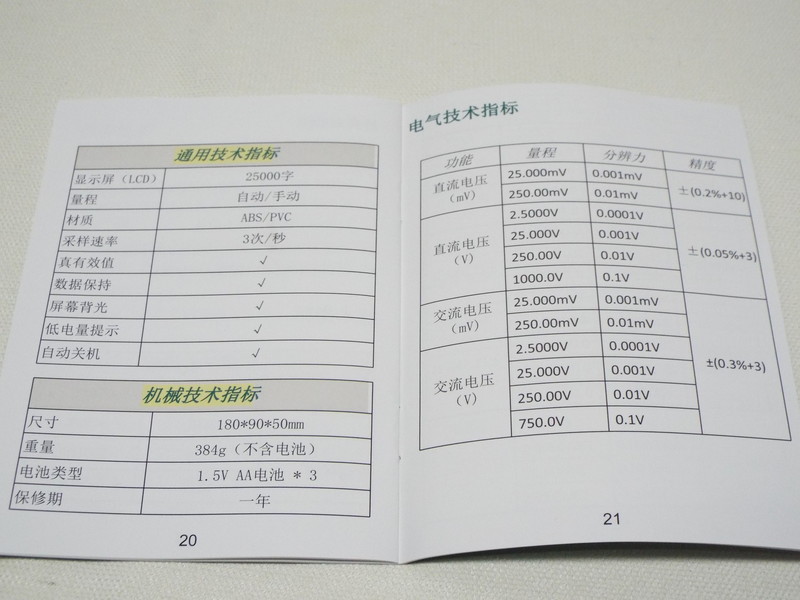 通用技术指标
显示屏（LCD） 25000字
量程 自动/手动
材质 ABS/PVC
采样速率 3次/秒
真有效值 √
数据保持 √
屏幕背光 √
低电量提示 √
自动关机 √
机械技术指标
尺寸 180*90*50mm
重量 384g（不含电池）
电池类型 1.5V AA电池 * 3
保修期 一年
20
电气技术指标
功能 量程 分辨力 精度
直流电压（mV） 25.000mV 0.001mV ±(0.2%+10)
250.00mV 0.01mV
直流电压（V） 2.5000V 0.0001V ±(0.05%+3)
25.000V 0.001V
250.00V 0.01V
1000.0V 0.1V
交流电压（mV） 25.000mV 0.001mV ±(0.3%+3)
250.00mV 0.01mV
交流电压（V） 2.5000V 0.0001V
25.000V 0.001V
250.00V 0.01V
750.0V 0.1V
21